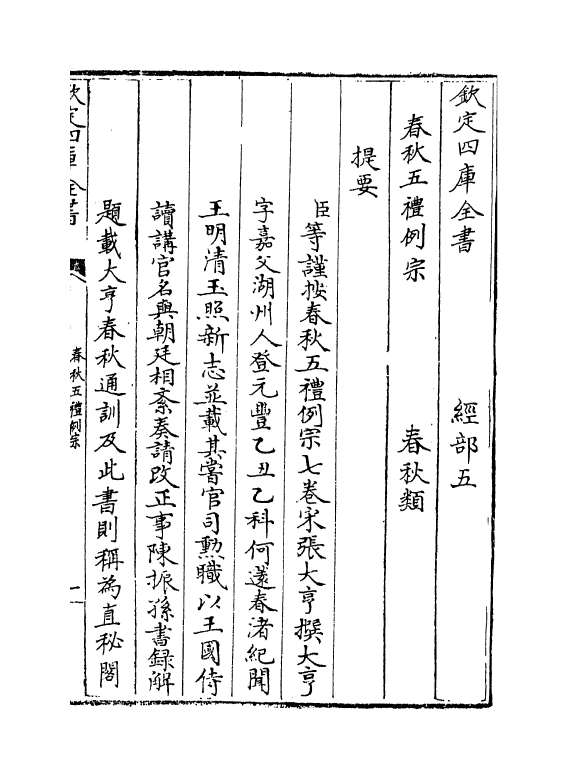 欽定四庫全書　經部五
春秋五禮例宗　春秋類
提要
臣等謹按春秋五禮例宗七卷宋張大亨撰大亨
字嘉父湖州人登元豐乙丑乙科何薳春渚紀聞
王明清玉照新志並載其嘗官司勲職以王國侍
讀講官名與朝廷相紊奏請改正事陳振孫書録解
題載大亨春秋通訓及此書則稱為直秘閣
欽定四庫全書
春秋五禮例宗
一